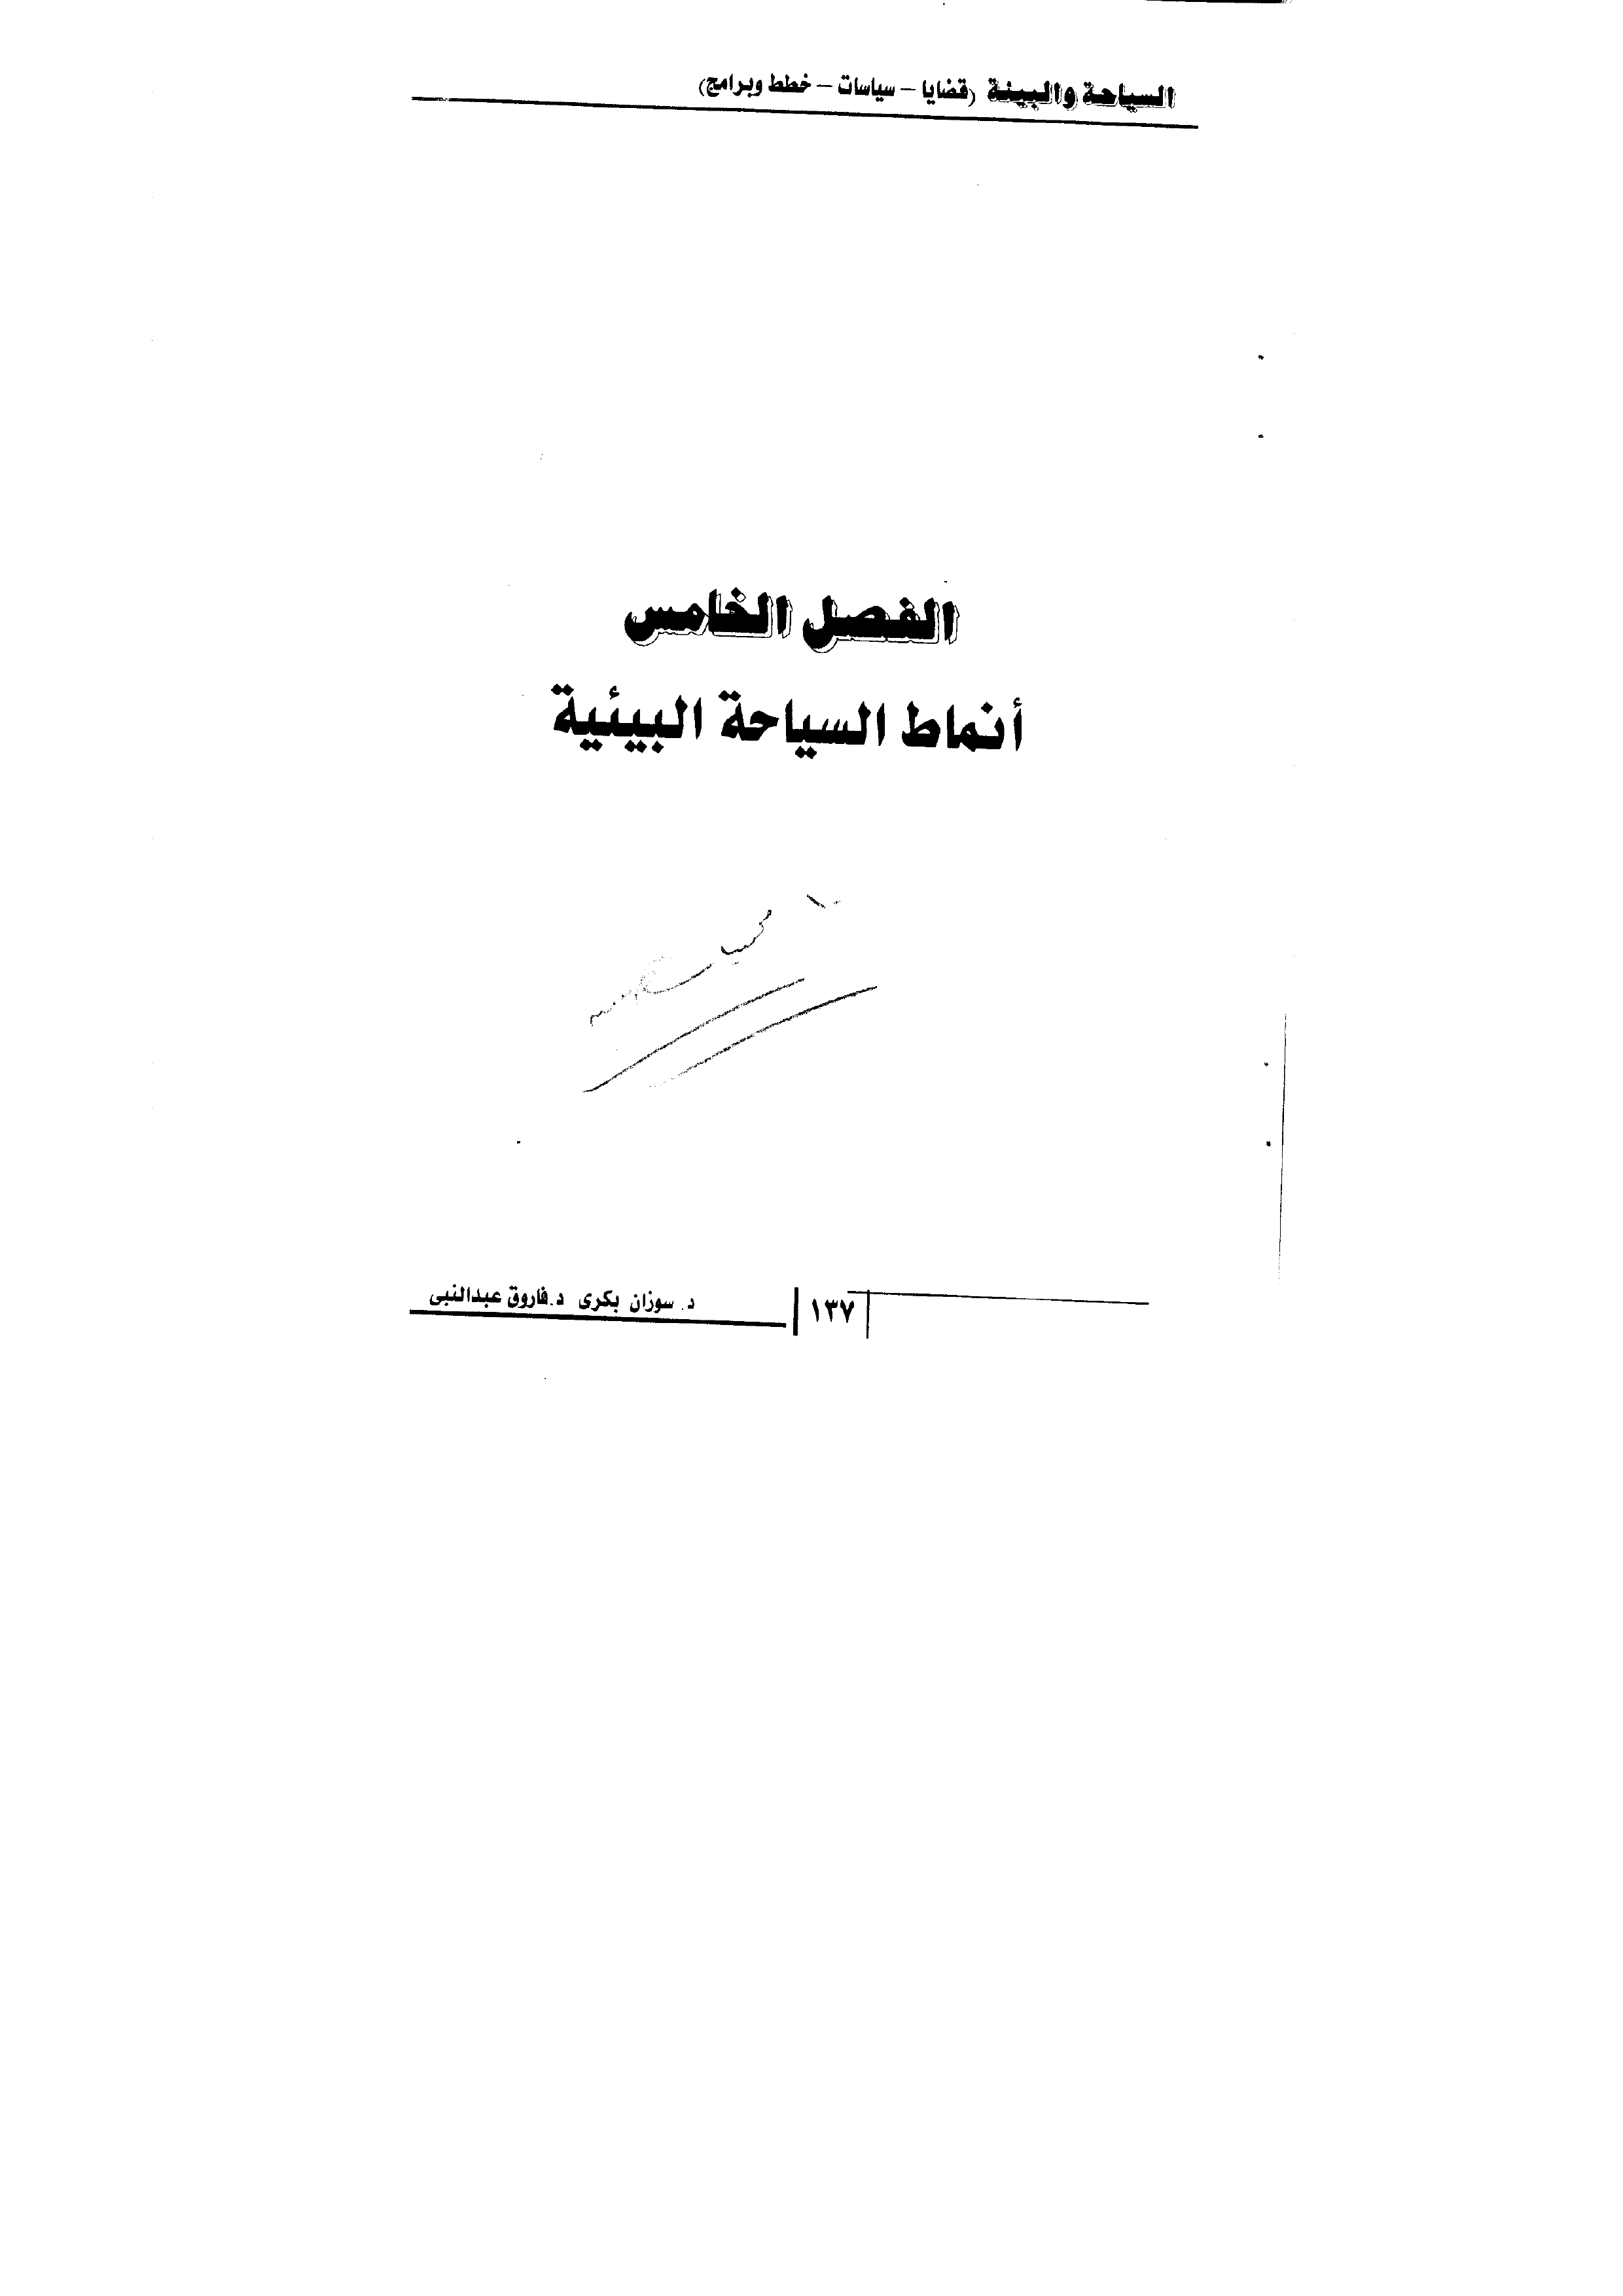 السياحة والبيئة (قضايا – سياسات – خطط وبرامج)
الفصل الخامس
أنماط السياحة البيئية
١٣٧
د. سوزان بكرى د.فاروق عبدالنبى